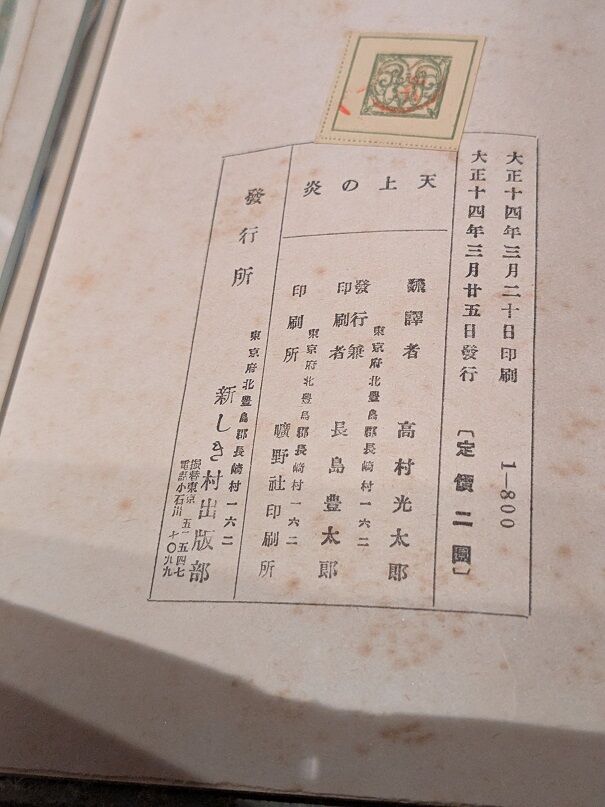 大正十四年三月二十日印刷
1—800
大正十四年三月廿五日發行
〔定價二圓〕
天上の炎
飜譯者 高村光太郎
東京府北豊島郡長崎村一六二
發行兼印刷者 長島豊太郎
東京府北豊島郡長崎村一六二
印刷所 曠野社印刷所
發行所
東京府北豊島郡長崎村一六二
新しき村出版部
振替東京 五一五四七
電話小石川 七〇九九